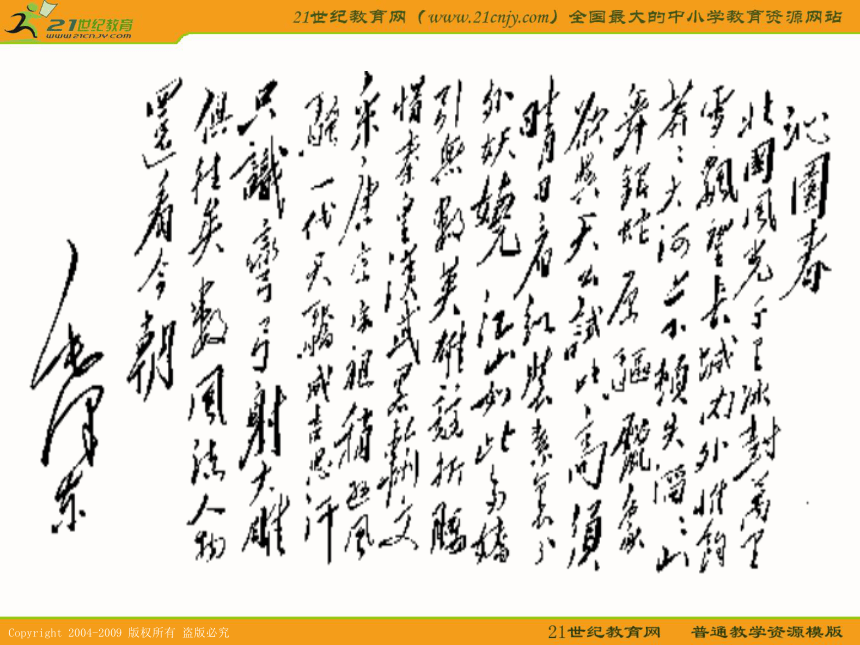 21世纪教育
www.21cnjy.com
21世纪教育网（www.21cnjy.com）全国最大的中小学教育资源网站
沁園春
北國風光千里冰封萬里
雪飄望長城内外惟餘
莽々大河上下頓失滔々山
舞銀蛇原驅臘象
欲與天公試比高須
晴日看红裝素裹分
外妖嬈江山如此多嬌
引無數英雄競折腰
惜秦皇漢武略輸文
采唐宗宋祖稍遜風
騷一代天驕成吉思汗
只識彎弓射大雕
俱往矣數風流人物
還看今朝
毛澤東
Copyright 2004-2009 版权所有 盗版必究
21世纪教育网 普通教学资源模版